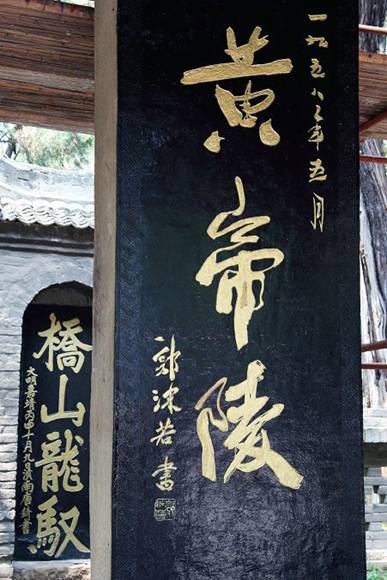 一九五八年五月
黄帝陵
郭沫若書
橋山龍馭
大明嘉靖丙申十月九日滇南唐錡書